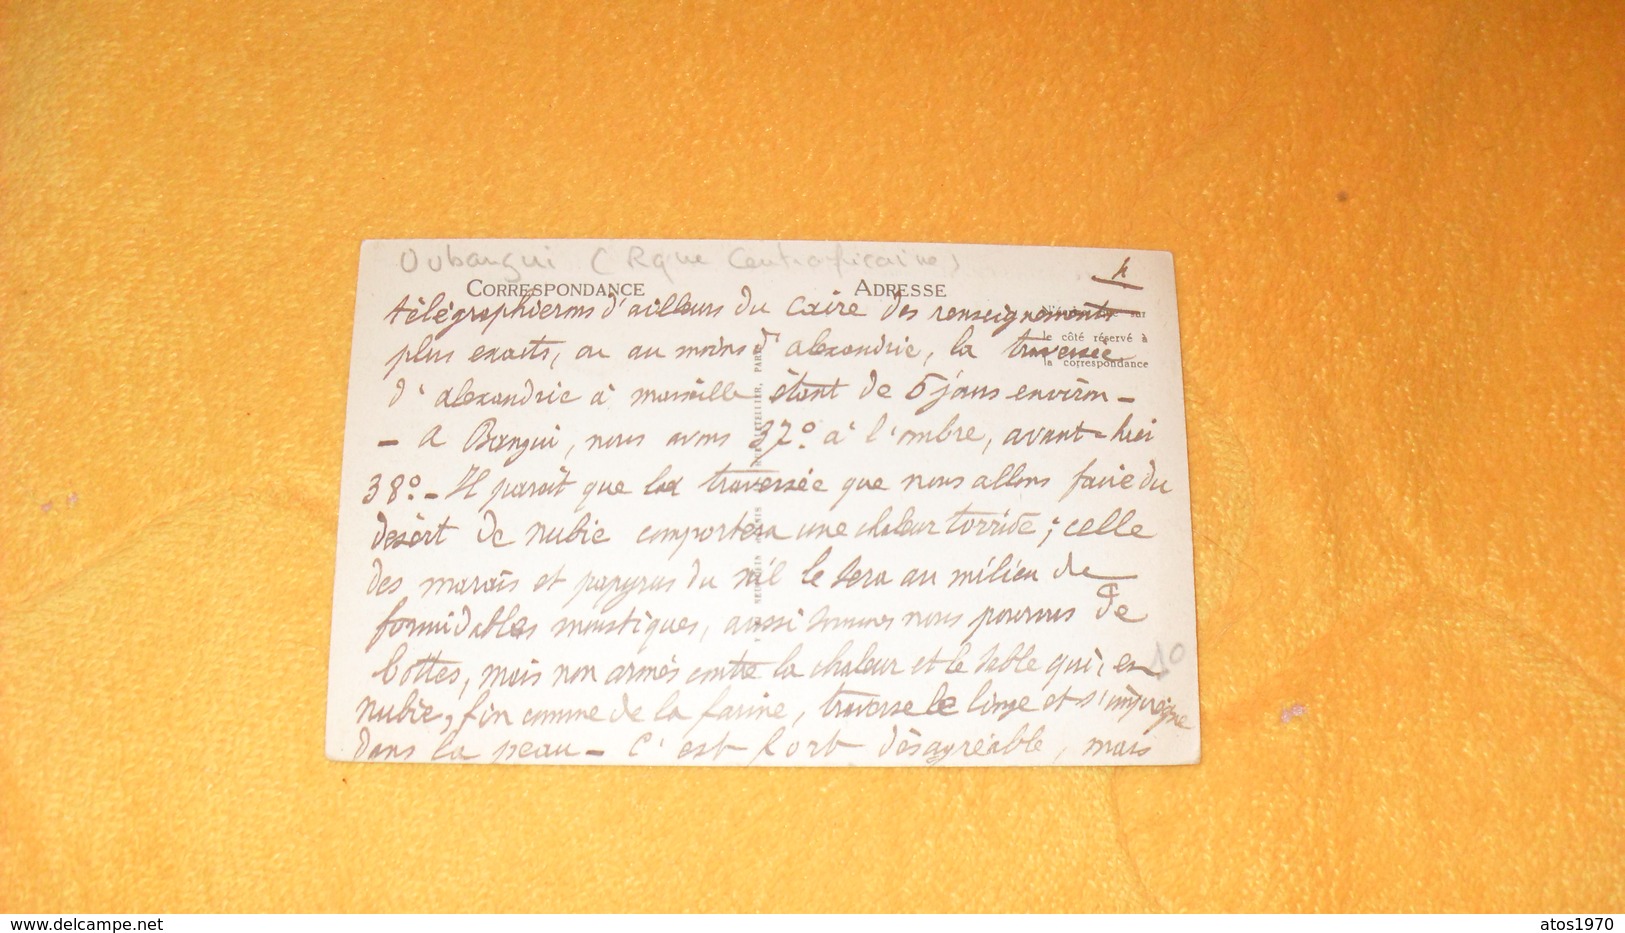 Oubangui (Rque Centrafricaine)
4
CORRESPONDANCE
ADRESSE
télégraphierons d'ailleurs du Caire des renseignements
sur
plus exacts, ou au moins d'alexandrie, la traversée
le côté réservé à
la correspondance
d'alexandrie à marseille étant de 5 jours environ -
- A Bangui, nous avons 37° à l'ombre, avant-hier
38° - Il paraît que la traversée que nous allons faire du
desert de nubie comportera une chaleur torride; celle
des marais et papyrus du nil le sera au milieu de
formidables moustiques, aussi sommes nous pourvus de
bottes, mais non armés contre la chaleur et le sable qui, en
10
nubie, fin comme de la farine, traverse le linge et s'imprègne
dans la peau - C'est fort désagréable, mais
PARIS
delcampe.net
atos1970